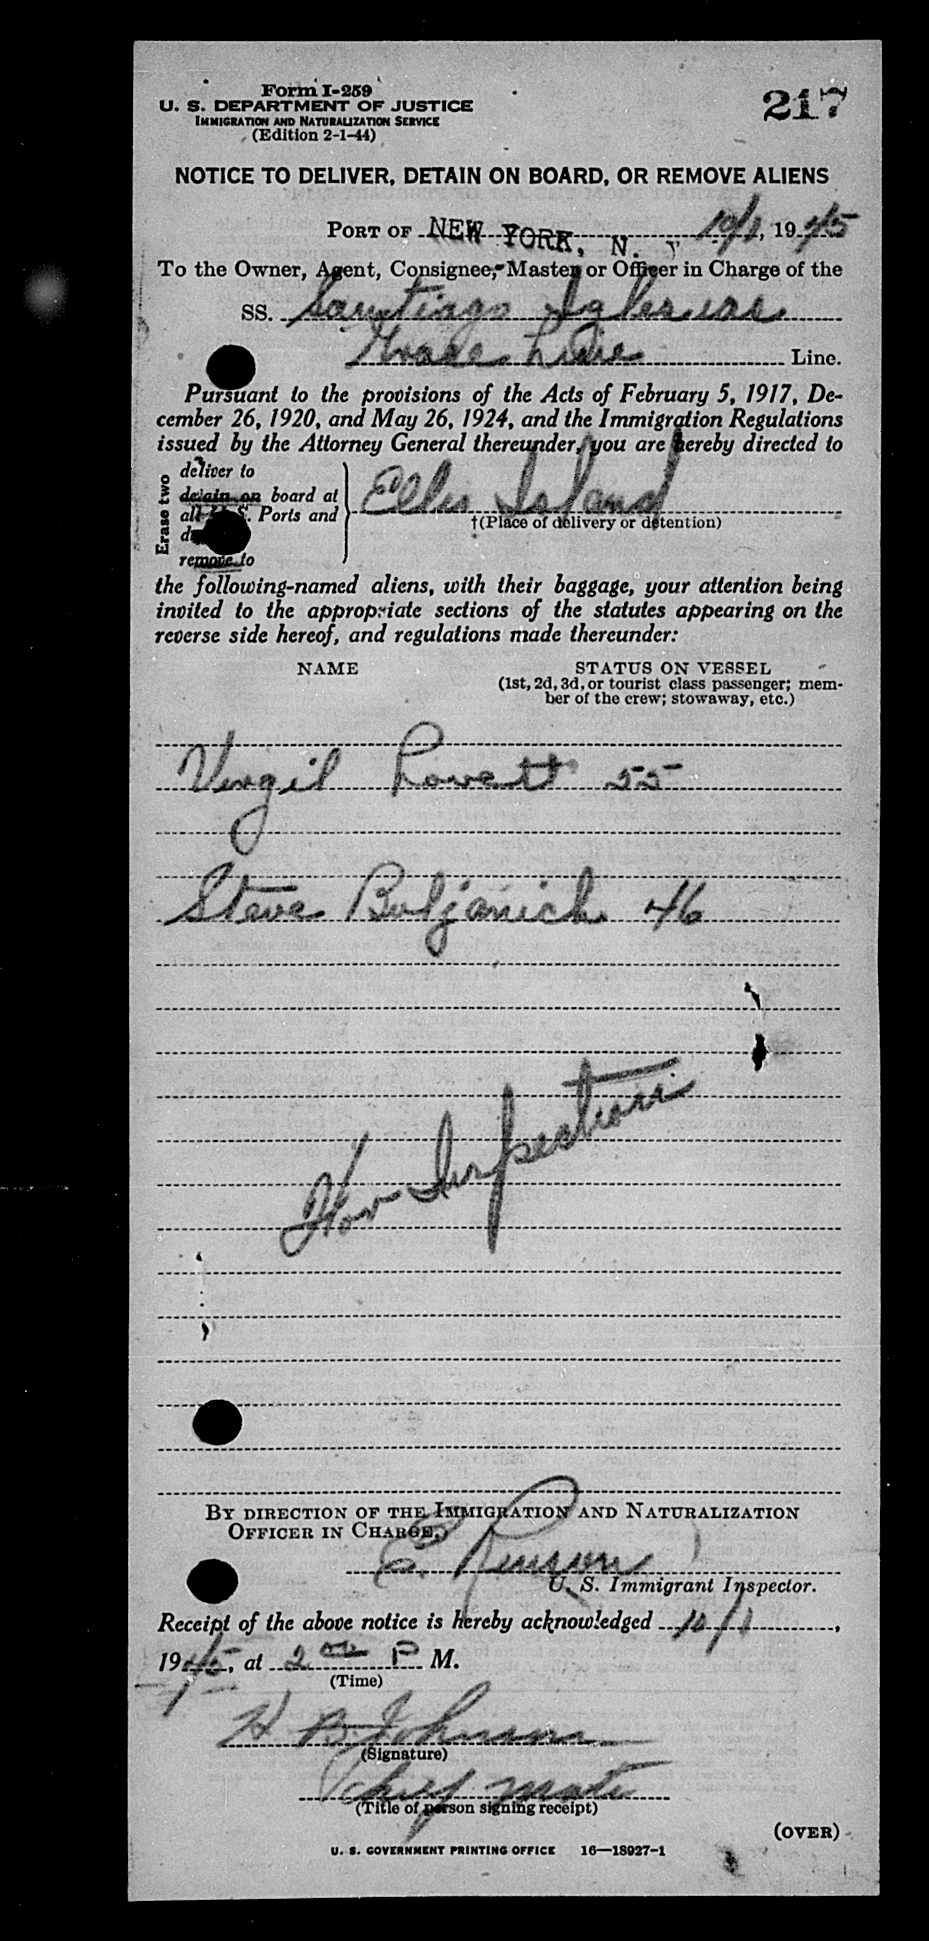 Form I-259
217
U. S. DEPARTMENT OF JUSTICE
IMMIGRATION AND NATURALIZATION SERVICE
(Edition 2-1-44)
NOTICE TO DELIVER, DETAIN ON BOARD, OR REMOVE ALIENS
PORT OF NEW YORK, N. Y 10/1, 1945
To the Owner, Agent, Consignee, Master or Officer in Charge of the
SS. Santiago Iglesias
Grace Line Line.
Pursuant to the provisions of the Acts of February 5, 1917, De-
cember 26, 1920, and May 26, 1924, and the Immigration Regulations
issued by the Attorney General thereunder, you are hereby directed to
Erase two
deliver to
detain on board at
all U. S. Ports and
remove to
Ellis Island
†(Place of delivery or detention)
the following-named aliens, with their baggage, your attention being
invited to the appropriate sections of the statutes appearing on the
reverse side hereof, and regulations made thereunder:
NAME STATUS ON VESSEL
(1st, 2d, 3d, or tourist class passenger; mem-
ber of the crew; stowaway, etc.)
Virgil Lovett 55
Steve Buljanich 46
For Inspection
BY DIRECTION OF THE IMMIGRATION AND NATURALIZATION
OFFICER IN CHARGE,
E.
U. S. Immigrant Inspector.
Receipt of the above notice is hereby acknowledged 10/1,
1945, at 2 00 P M.
(Time)
H B Johnson
(Signature)
Chief mate
(Title of person signing receipt)
(OVER)
U. S. GOVERNMENT PRINTING OFFICE 16—18927-1